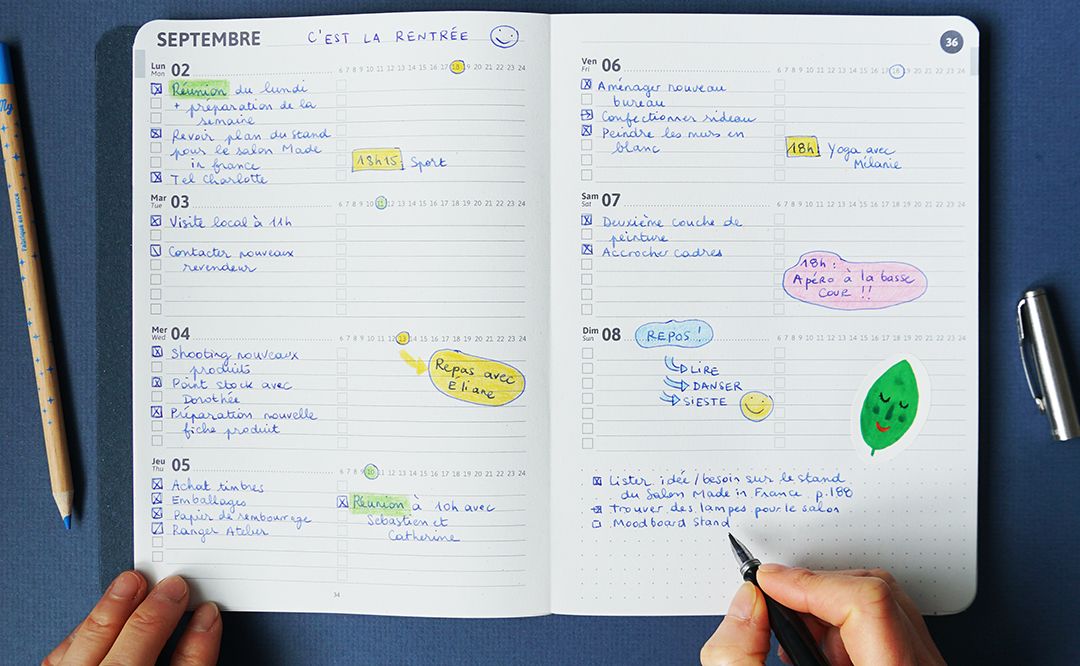 SEPTEMBRE C'EST LA RENTRÉE
Lun 02
Mon
6 7 8 9 10 11 12 13 14 15 16 17 18 19 20 21 22 23 24
Réunion du lundi
+ préparation de la
semaine
Revoir plan du stand
pour le salon Made
in france
Tel Charlotte
18h15 Sport
Mar 03
Tue
6 7 8 9 10 11 12 13 14 15 16 17 18 19 20 21 22 23 24
Visite local à 11h
Contacter nouveaux
revendeur
Mer 04
Wed
6 7 8 9 10 11 12 13 14 15 16 17 18 19 20 21 22 23 24
Shooting nouveaux
produits
Point stock avec
Dorothée
Préparation nouvelle
fiche produit
Repas avec
Eliane
Jeu 05
Thu
6 7 8 9 10 11 12 13 14 15 16 17 18 19 20 21 22 23 24
Achat timbres
Emballages
Papier de rembourrage
Ranger Atelier
Réunion à 10h avec
Sebastien et
Catherine
34
36
Ven 06
Fri
6 7 8 9 10 11 12 13 14 15 16 17 18 19 20 21 22 23 24
Aménager nouveau
bureau
Confectionner rideau
Peindre les murs en
blanc
18h Yoga avec
Mélanie
Sam 07
Sat
6 7 8 9 10 11 12 13 14 15 16 17 18 19 20 21 22 23 24
Deuxième couche de
peinture
Accrocher cadres
18h:
Apéro à la basse
cour !!
Dim 08
Sun
6 7 8 9 10 11 12 13 14 15 16 17 18 19 20 21 22 23 24
REPOS !
LIRE
DANSER
SIESTE
Lister idée/besoin sur le stand
du Salon Made in France p.188
Trouver des lampes pour le salon
Moodboard stand
Fabriqué en France